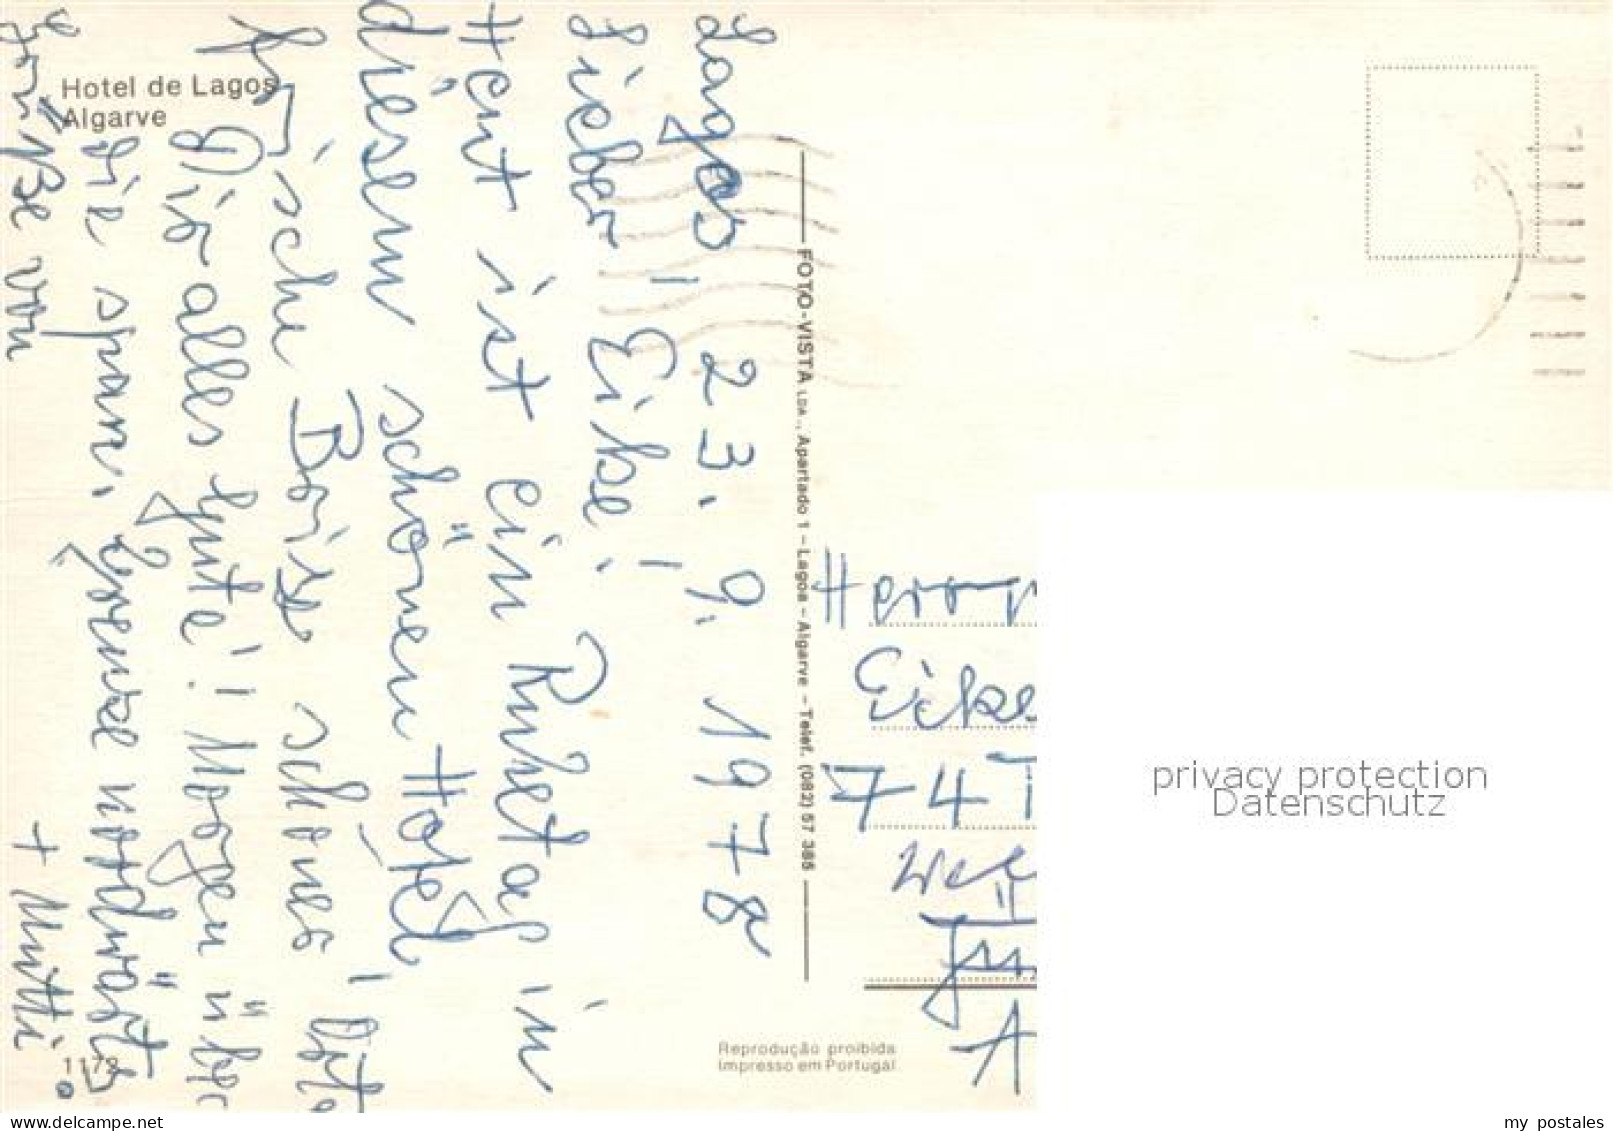 Hotel de Lagos
Algarve
Lagos, 23. 9. 1978
Lieber Eike!
Heut ist ein Ruhetag in
diesem schönen Hotel,
frische Brise, schönes
Dir alles Gute! Morgen über
die span. Grenze nordwärts.
Grüße von
+ Mutti
1172
FOTO-VISTA LDA., Apartado 1 - Lagoa - Algarve - Telef. (082) 57 385
Reprodução proibida
Impresso em Portugal
Herrn
Eike
74 T
privacy protection
Datenschutz
www.delcampe.net
my_postales